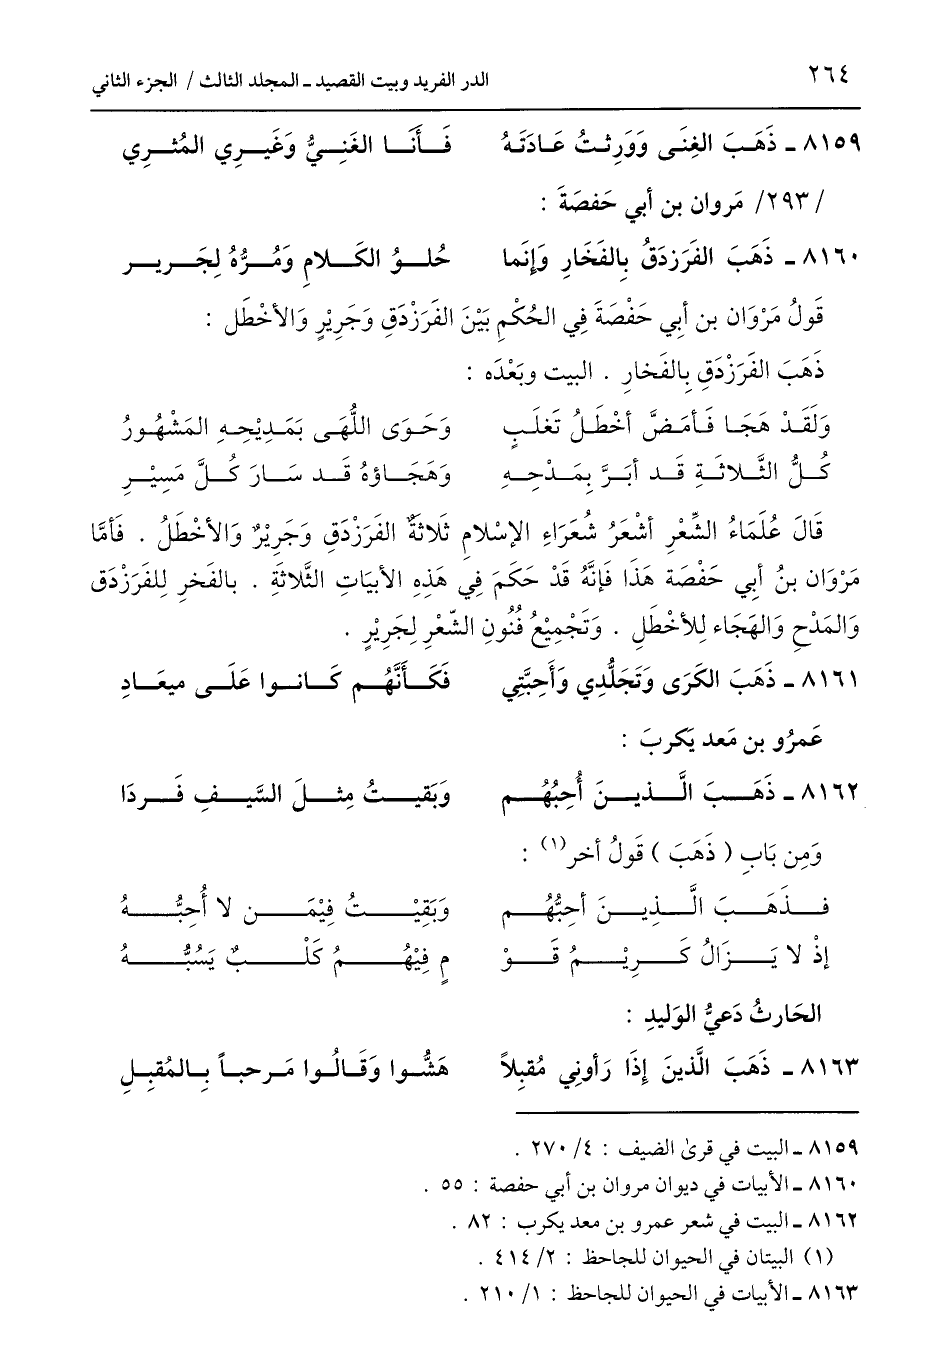 ٢٦٤ الدر الفريد وبيت القصيد ـ المجلد الثالث / الجزء الثاني
٨١٥٩ ـ ذَهَبَ الغِنَى وَوَرِثتُ عَادَتَهُ فَأَنَا الغَنِيُّ وَغَيرِي المُثرِي
/ ٢٩٣/ مَروان بن أبي حَفصَةَ :
٨١٦٠ ـ ذَهَبَ الفَرَزدَقُ بِالفَخَارِ وَإِنَما حُلوُ الكَلامِ وَمُرُّهُ لِجَرِيرِ
قَولُ مَرْوَان بن أبي حَفْصَةَ فِي الحُكْمِ بَيْنَ الفَرَزْدَقِ وَجَرِيْرٍ وَالأخْطَل :
ذَهَبَ الفَرَزْدَقِ بِالفَخارِ . البيت وبَعْدَه :
وَلَقَدْ هَجَا فَأمَضَّ أخْطَلُ تَغلَبٍ وَحَوَى اللُّهَى بَمَدِيْحِهِ المَشْهُورُ
كُلُّ الثَّلاثَةِ قَد أبَرَّ بِمَدْحِهِ وَهَجَاؤهُ قَد سَارَ كُلَّ مَسِيْرِ
قَالَ عُلَمَاءُ الشِّعْرِ أشْعَرُ شُعَرَاءِ الإسْلامِ ثَلاثَةٌ الفَرَزْدَقِ وَجَرِيْرٌ وَالأخْطَلُ . فَأمَّا
مَرْوَان بنُ أبي حَفْصَة هَذَا فَإنَّهُ قَدْ حَكَمَ فِي هَذِهِ الأبيَاتِ الثَّلاثَةِ . بالفَخرِ لِلفَرَزْدَق
وَالمَدْحِ وَالهَجَاء لِلأخْطَلِ . وَتَجْمِيْعُ فُنُونِ الشّعْرِ لِجَرِيْرٍ .
٨١٦١ ـ ذَهَبَ الكَرَى وَتَجَلُّدِي وَأَحِبَّتِي فَكَأَنَّهُم كَانوا عَلَى ميعَادِ
عَمرُو بن مَعد يَكربَ :
٨١٦٢ ـ ذَهَبَ الَّذينَ أُحِبُهُم وَبَقيتُ مِثلَ السَّيفِ فَردَا
وَمِن بَابِ ( ذَهَبَ ) قَولُ أخر(١) :
فذَهَبَ الَّذِينَ أحِبُّهُم وَبَقِيْتُ فِيْمَن لا أُحِبُّهُ
إذْ لا يَزَالُ كَرِيْمُ قَوْ مٍ فِيْهُمُ كَلْبٌ يَسُبُّهُ
الحَارثُ دَعيُّ الوَليدِ :
٨١٦٣ ـ ذَهَبَ الَّذينَ إِذَا رَأوني مُقبِلاً هَشُّوا وَقَالُوا مَرحباً بِالمُقبِلِ
٨١٥٩ ـ البيت في قرىٰ الضيف : ٤/ ٢٧٠ .
٨١٦٠ ـ الأبيات في ديوان مروان بن أبي حفصة : ٥٥ .
٨١٦٢ ـ البيت في شعر عمرو بن معد يكرب : ٨٢ .
(١) البيتان في الحيوان للجاحظ : ٢/ ٤١٤ .
٨١٦٣ ـ الأبيات في الحيوان للجاحظ : ١/ ٢١٠ .